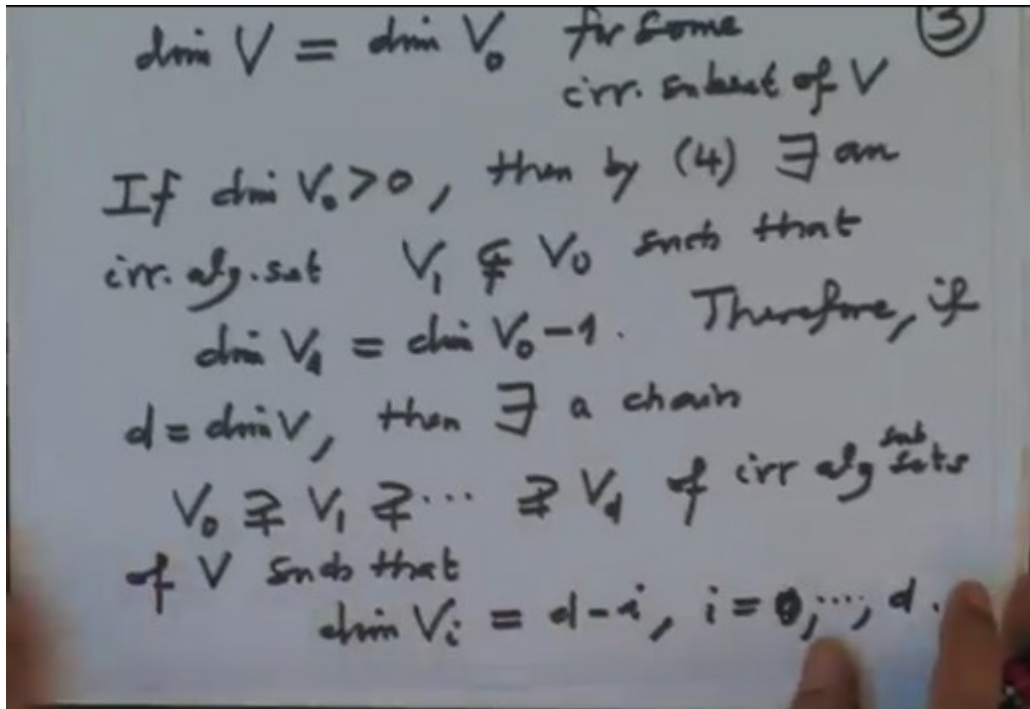 dim V = dim V₀ for some ③
irr. subset of V
If dim V₀ > 0, then by (4) ∃ an
irr. alg. set V₁ ⊊ V₀ such that
dim V₁ = dim V₀ - 1. Therefore, if
d = dim V, then ∃ a chain
V₀ ⊋ V₁ ⊋ ... ⊋ V_d of irr alg subsets
of V such that
dim V_i = d - i, i = 0, ..., d.